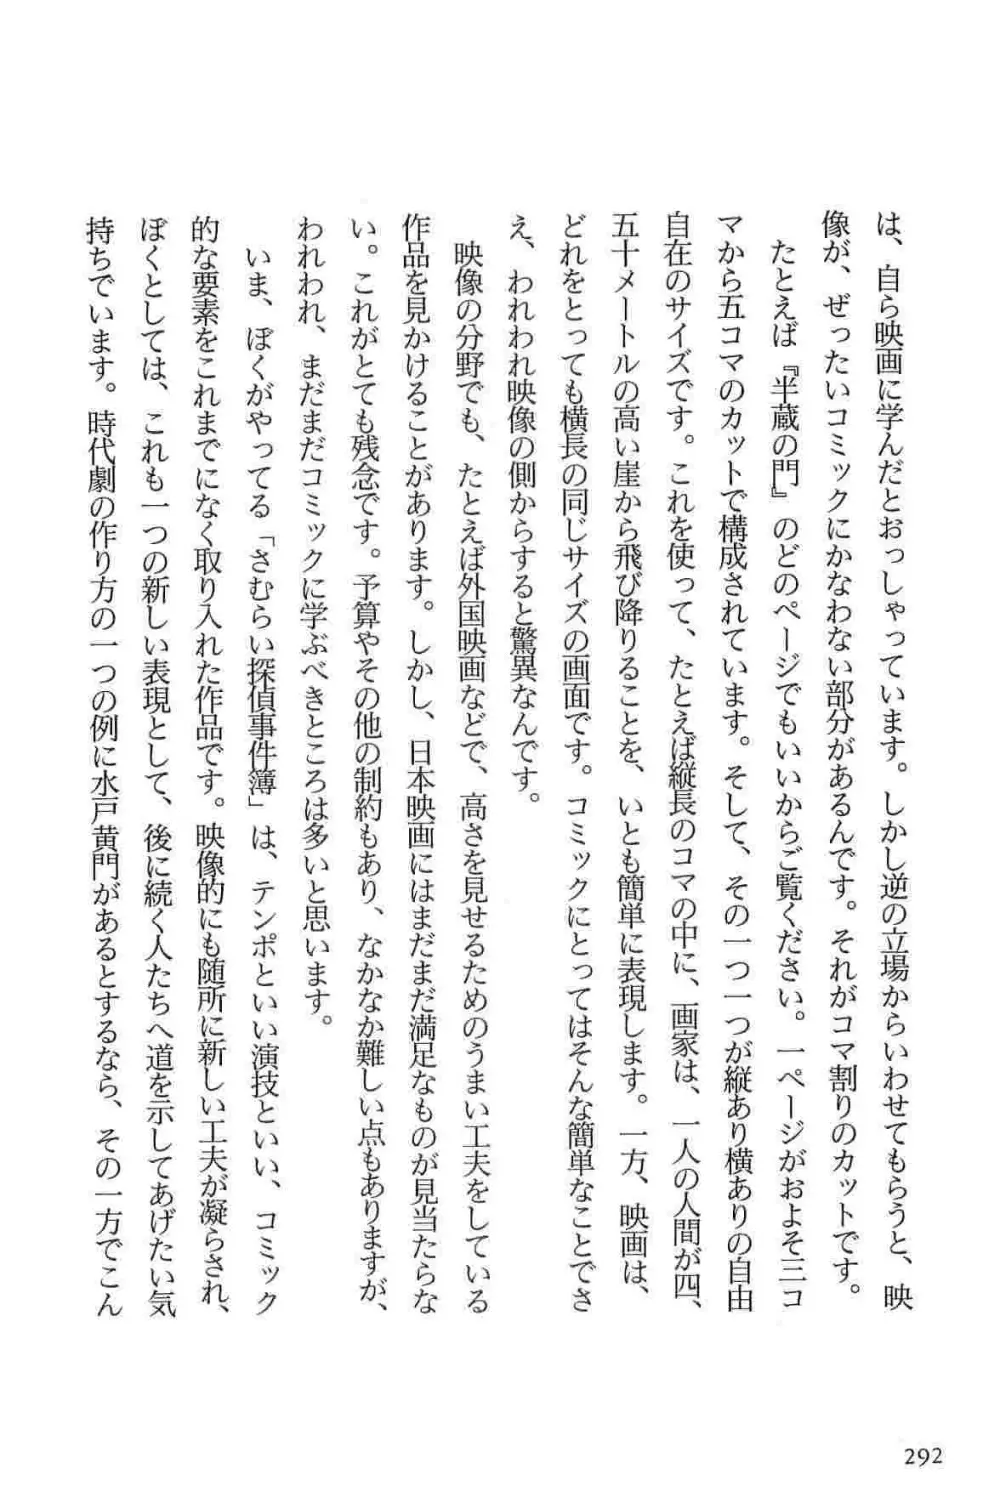 は、自ら映画に学んだとおっしゃっています。しかし逆の立場からいわせてもらうと、映
像が、ぜったいコミックにかなわない部分があるんです。それがコマ割りのカットです。
たとえば『半蔵の門』のどのページでもいいからご覧ください。一ページがおよそ三コ
マから五コマのカットで構成されています。そして、その一つ一つが縦あり横ありの自由
自在のサイズです。これを使って、たとえば縦長のコマの中に、画家は、一人の人間が四、
五十メートルの高い崖から飛び降りることを、いとも簡単に表現します。一方、映画は、
どれをとっても横長の同じサイズの画面です。コミックにとってはそんな簡単なことでさ
え、われわれ映像の側からすると驚異なんです。
映像の分野でも、たとえば外国映画などで、高さを見せるためのうまい工夫をしている
作品を見かけることがあります。しかし、日本映画にはまだまだ満足なものが見当たらな
い。これがとても残念です。予算やその他の制約もあり、なかなか難しい点もありますが、
われわれ、まだまだコミックに学ぶべきところは多いと思います。
いま、ぼくがやってる「さむらい探偵事件簿」は、テンポといい演技といい、コミック
的な要素をこれまでになく取り入れた作品です。映像的にも随所に新しい工夫が凝らされ、
ぼくとしては、これも一つの新しい表現として、後に続く人たちへ道を示してあげたい気
持ちでいます。時代劇の作り方の一つの例に水戸黄門があるとするなら、その一方でこん
292